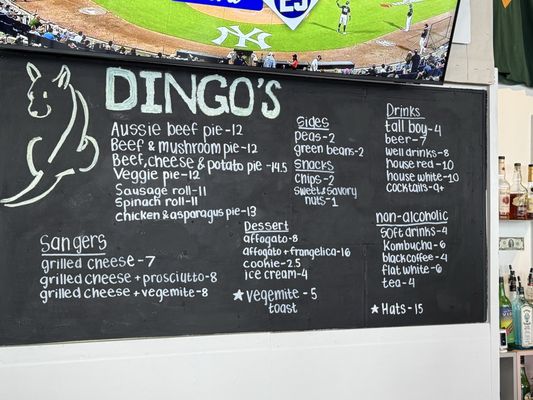 DINGO'S
Aussie beef pie-12
Beef & mushroom pie-12
Beef, cheese & potato pie-14.5
Veggie pie-12
Sausage roll-11
Spinach roll-11
chicken & asparagus pie-13
Sides
peas-2
green beans-2
snacks
chips-2
sweet & savory
nuts-1
Drinks
tall boy-4
beer-7
well drinks-8
house red-10
house white-10
cocktails-9+
Sangers
grilled cheese-7
grilled cheese + prosciutto-8
grilled cheese + vegemite-8
Dessert
affogato-8
affogato + frangelica-16
cookie-2.5
ice cream-4
★ vegemite-5
toast
non-alcoholic
soft drinks-4
Kombucha-6
black coffee-4
flat white-6
tea-4
★ Hats-15